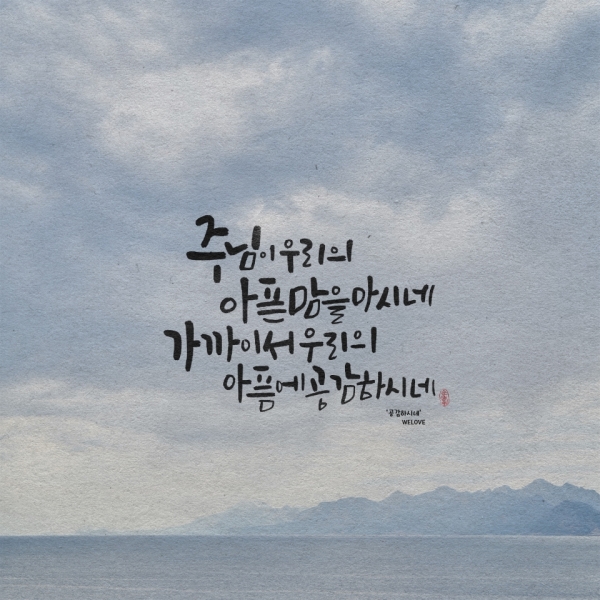 주님이 우리의
아픈 맘을 아시네
가까이서 우리의
아픔에 공감하시네
'공감하시네'
WELOVE